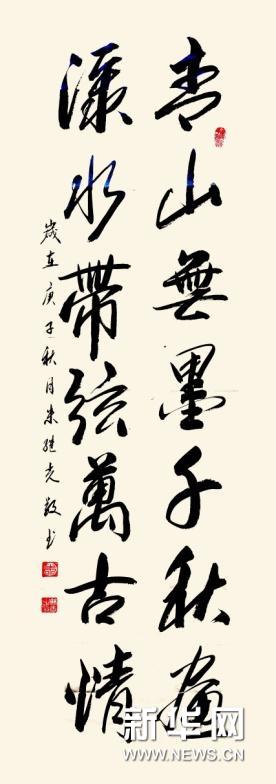 青山無墨千秋畫
水帶弦萬古情
歲在庚子秋月敬书
新华网
WWW.NEWS.CN